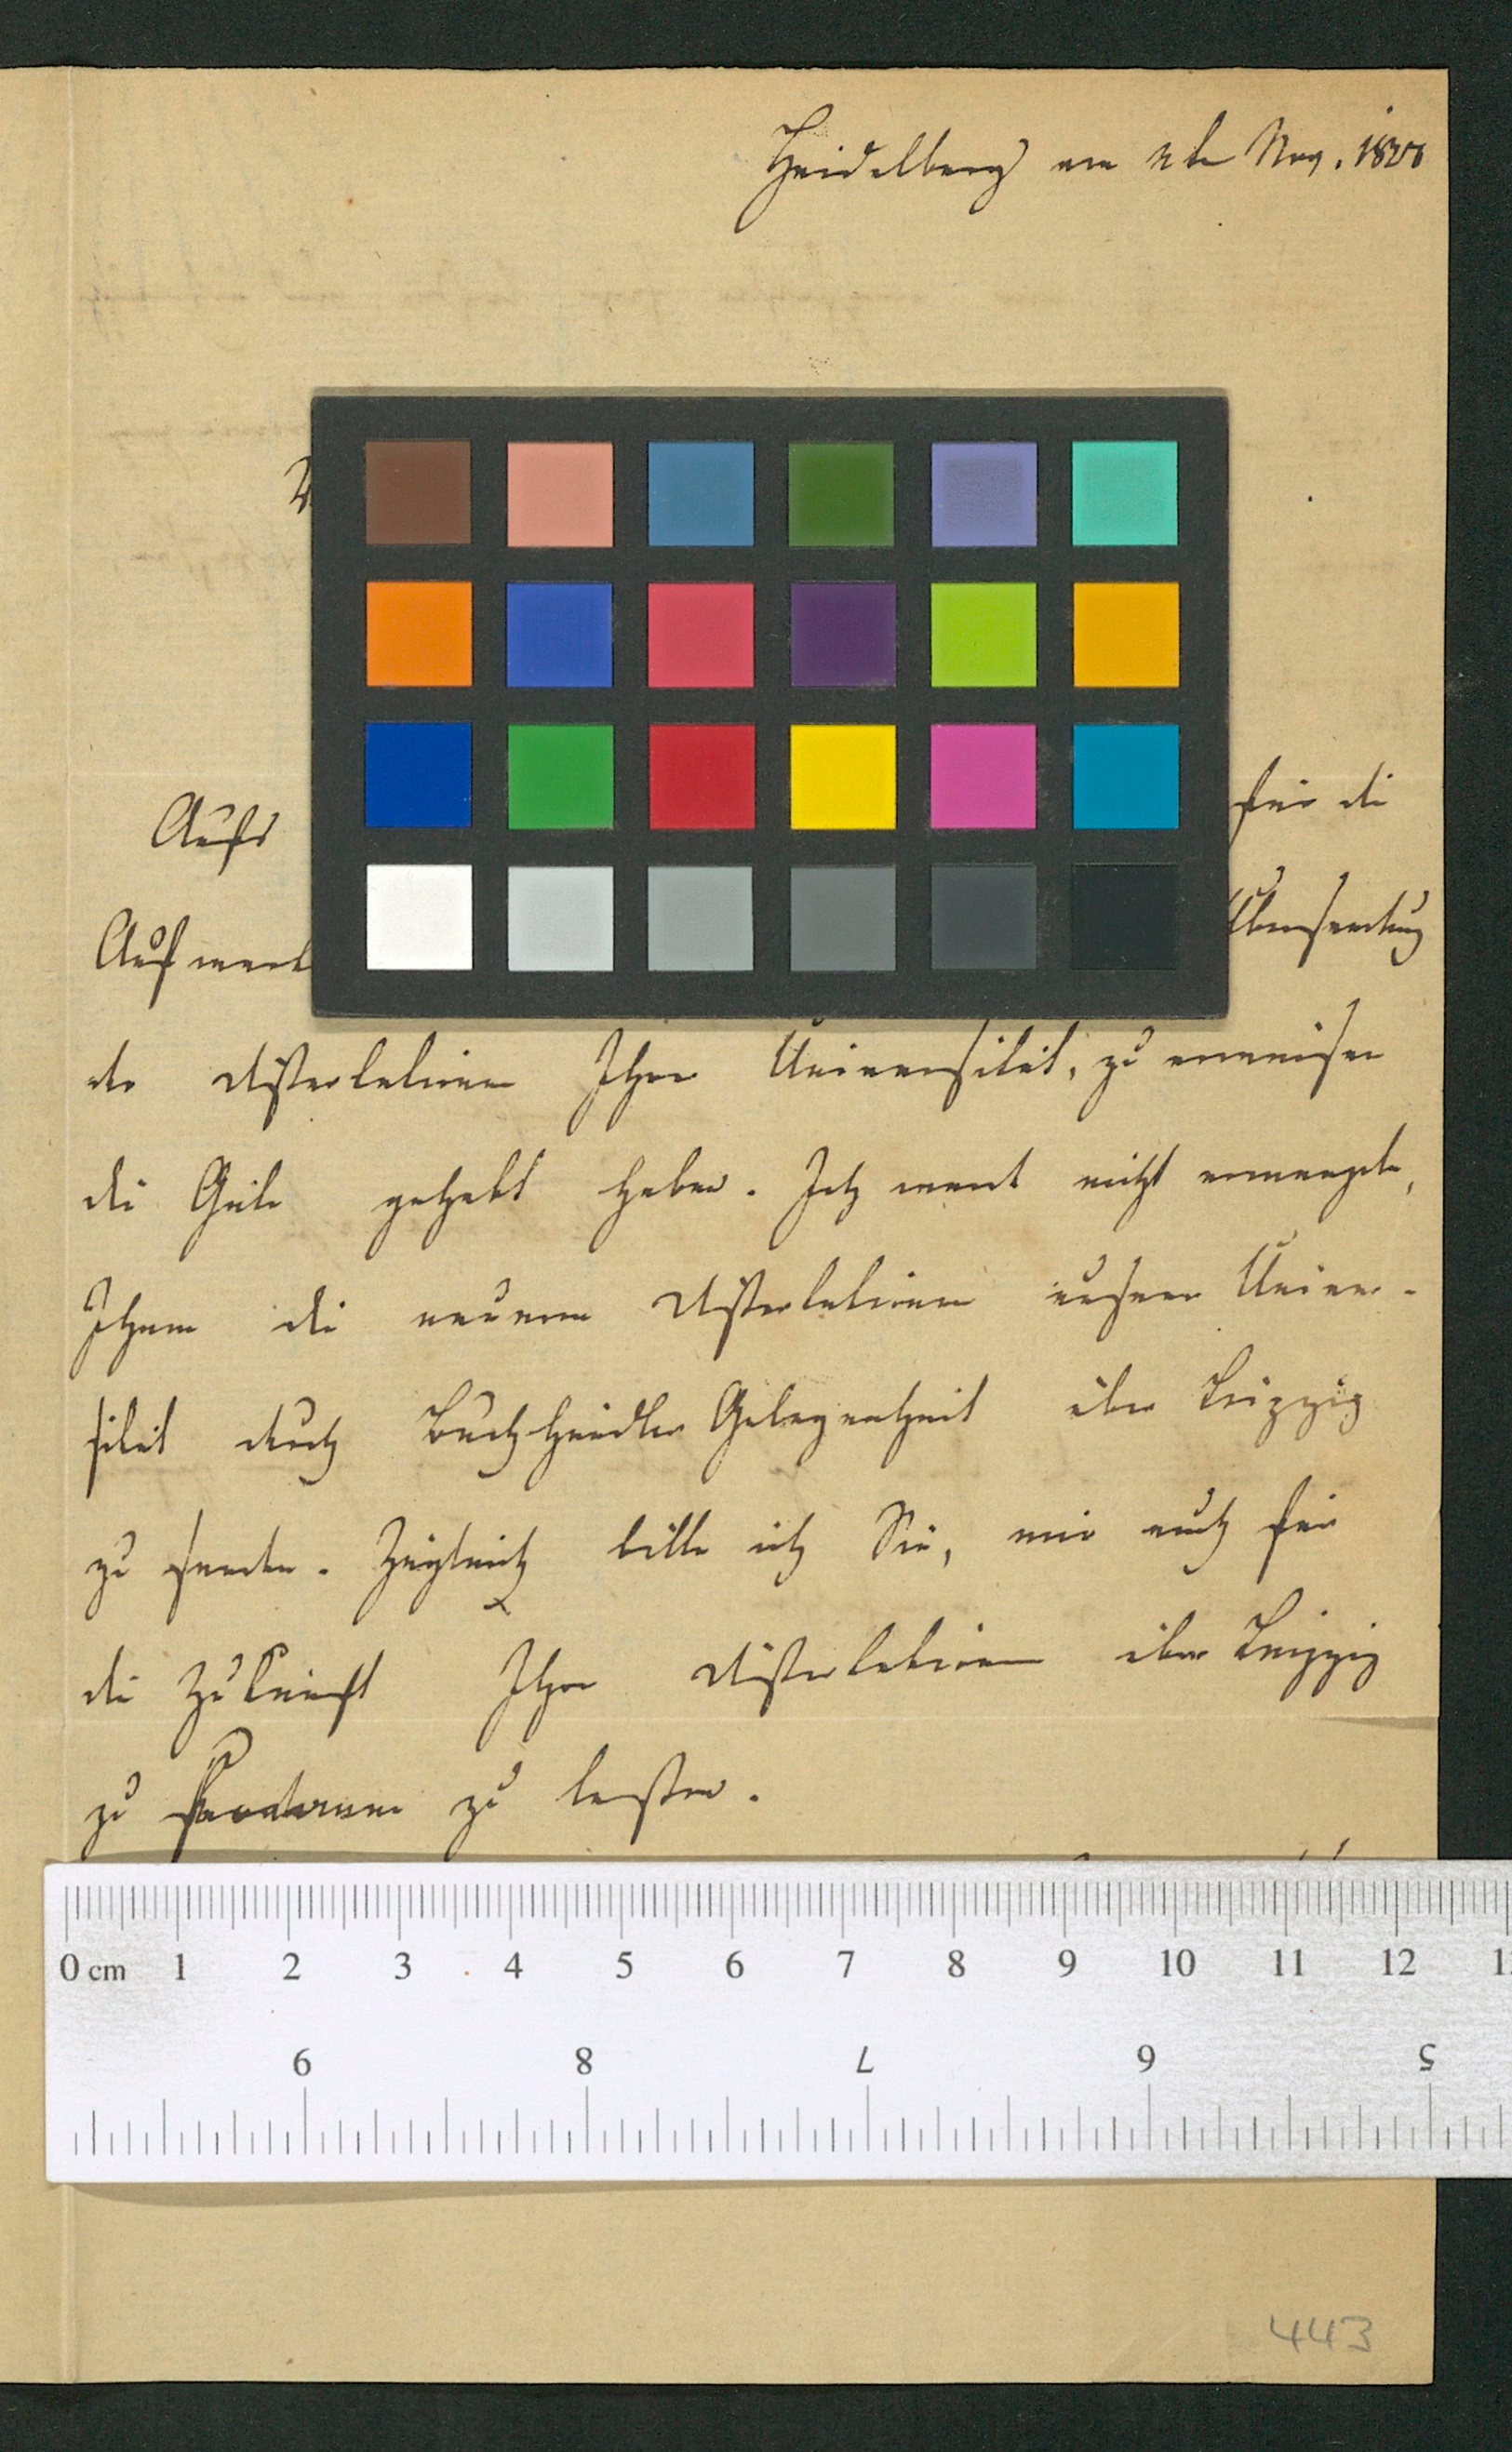 Heidelberg am 2ten Nov. 1828
Aufs
für die
Aufmerk
Übersendung
der Dissertationen Ihrer Universität, zu erweisen
die Güte gehabt haben. Ich werd nicht ermangeln,
Ihnen die neueren Dissertationen unserer Univer-
sität durch Buchhändler Gelegenheit über Leipzig
zu senden. Zugleich bitte ich Sie, mir auch für
die Zukunft Ihre Dissertationen über Leipzig
zu lassen.
0 cm 1 2 3 4 5 6 7 8 9 10 11 12
9 8 7 6 5
443